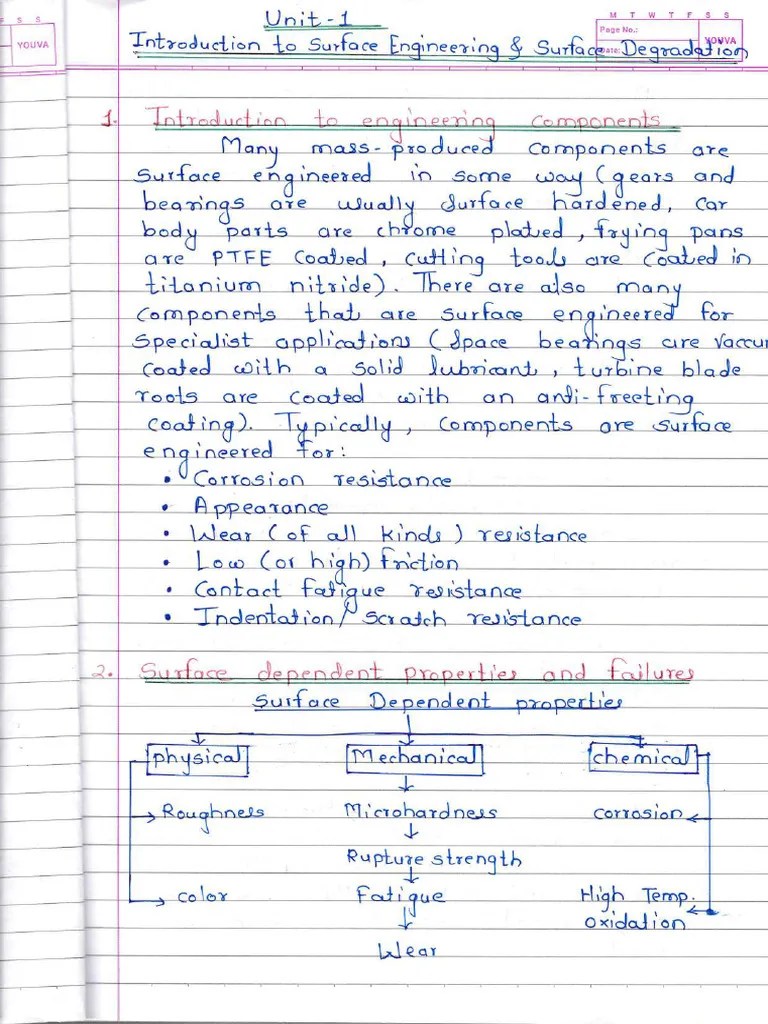 S S
YOUVA
M T W T F S S
Page No.:
Date:
YOUVA
Unit-1
Introduction to Surface Engineering & Surface Degradation
1. Introduction to engineering components
Many mass-produced components are
surface engineered in some way (gears and
bearings are usually surface hardened, car
body parts are chrome plated, frying pans
are PTFE coated, cutting tools are coated in
titanium nitride). There are also many
components that are surface engineered for
specialist applications (space bearings are vaccum
coated with a solid lubricant, turbine blade
roots are coated with an anti-freeting
coating). Typically, components are surface
engineered for:
• Corrosion resistance
• Appearance
• Wear (of all kinds) resistance
• Low (or high) friction
• Contact fatigue resistance
• Indentation/ scratch resistance
2. Surface dependent properties and failures
Surface Dependent properties
physical Mechanical chemical
Roughness Microhardness corrosion
Rupture strength
color Fatigue High Temp.
oxidation
Wear